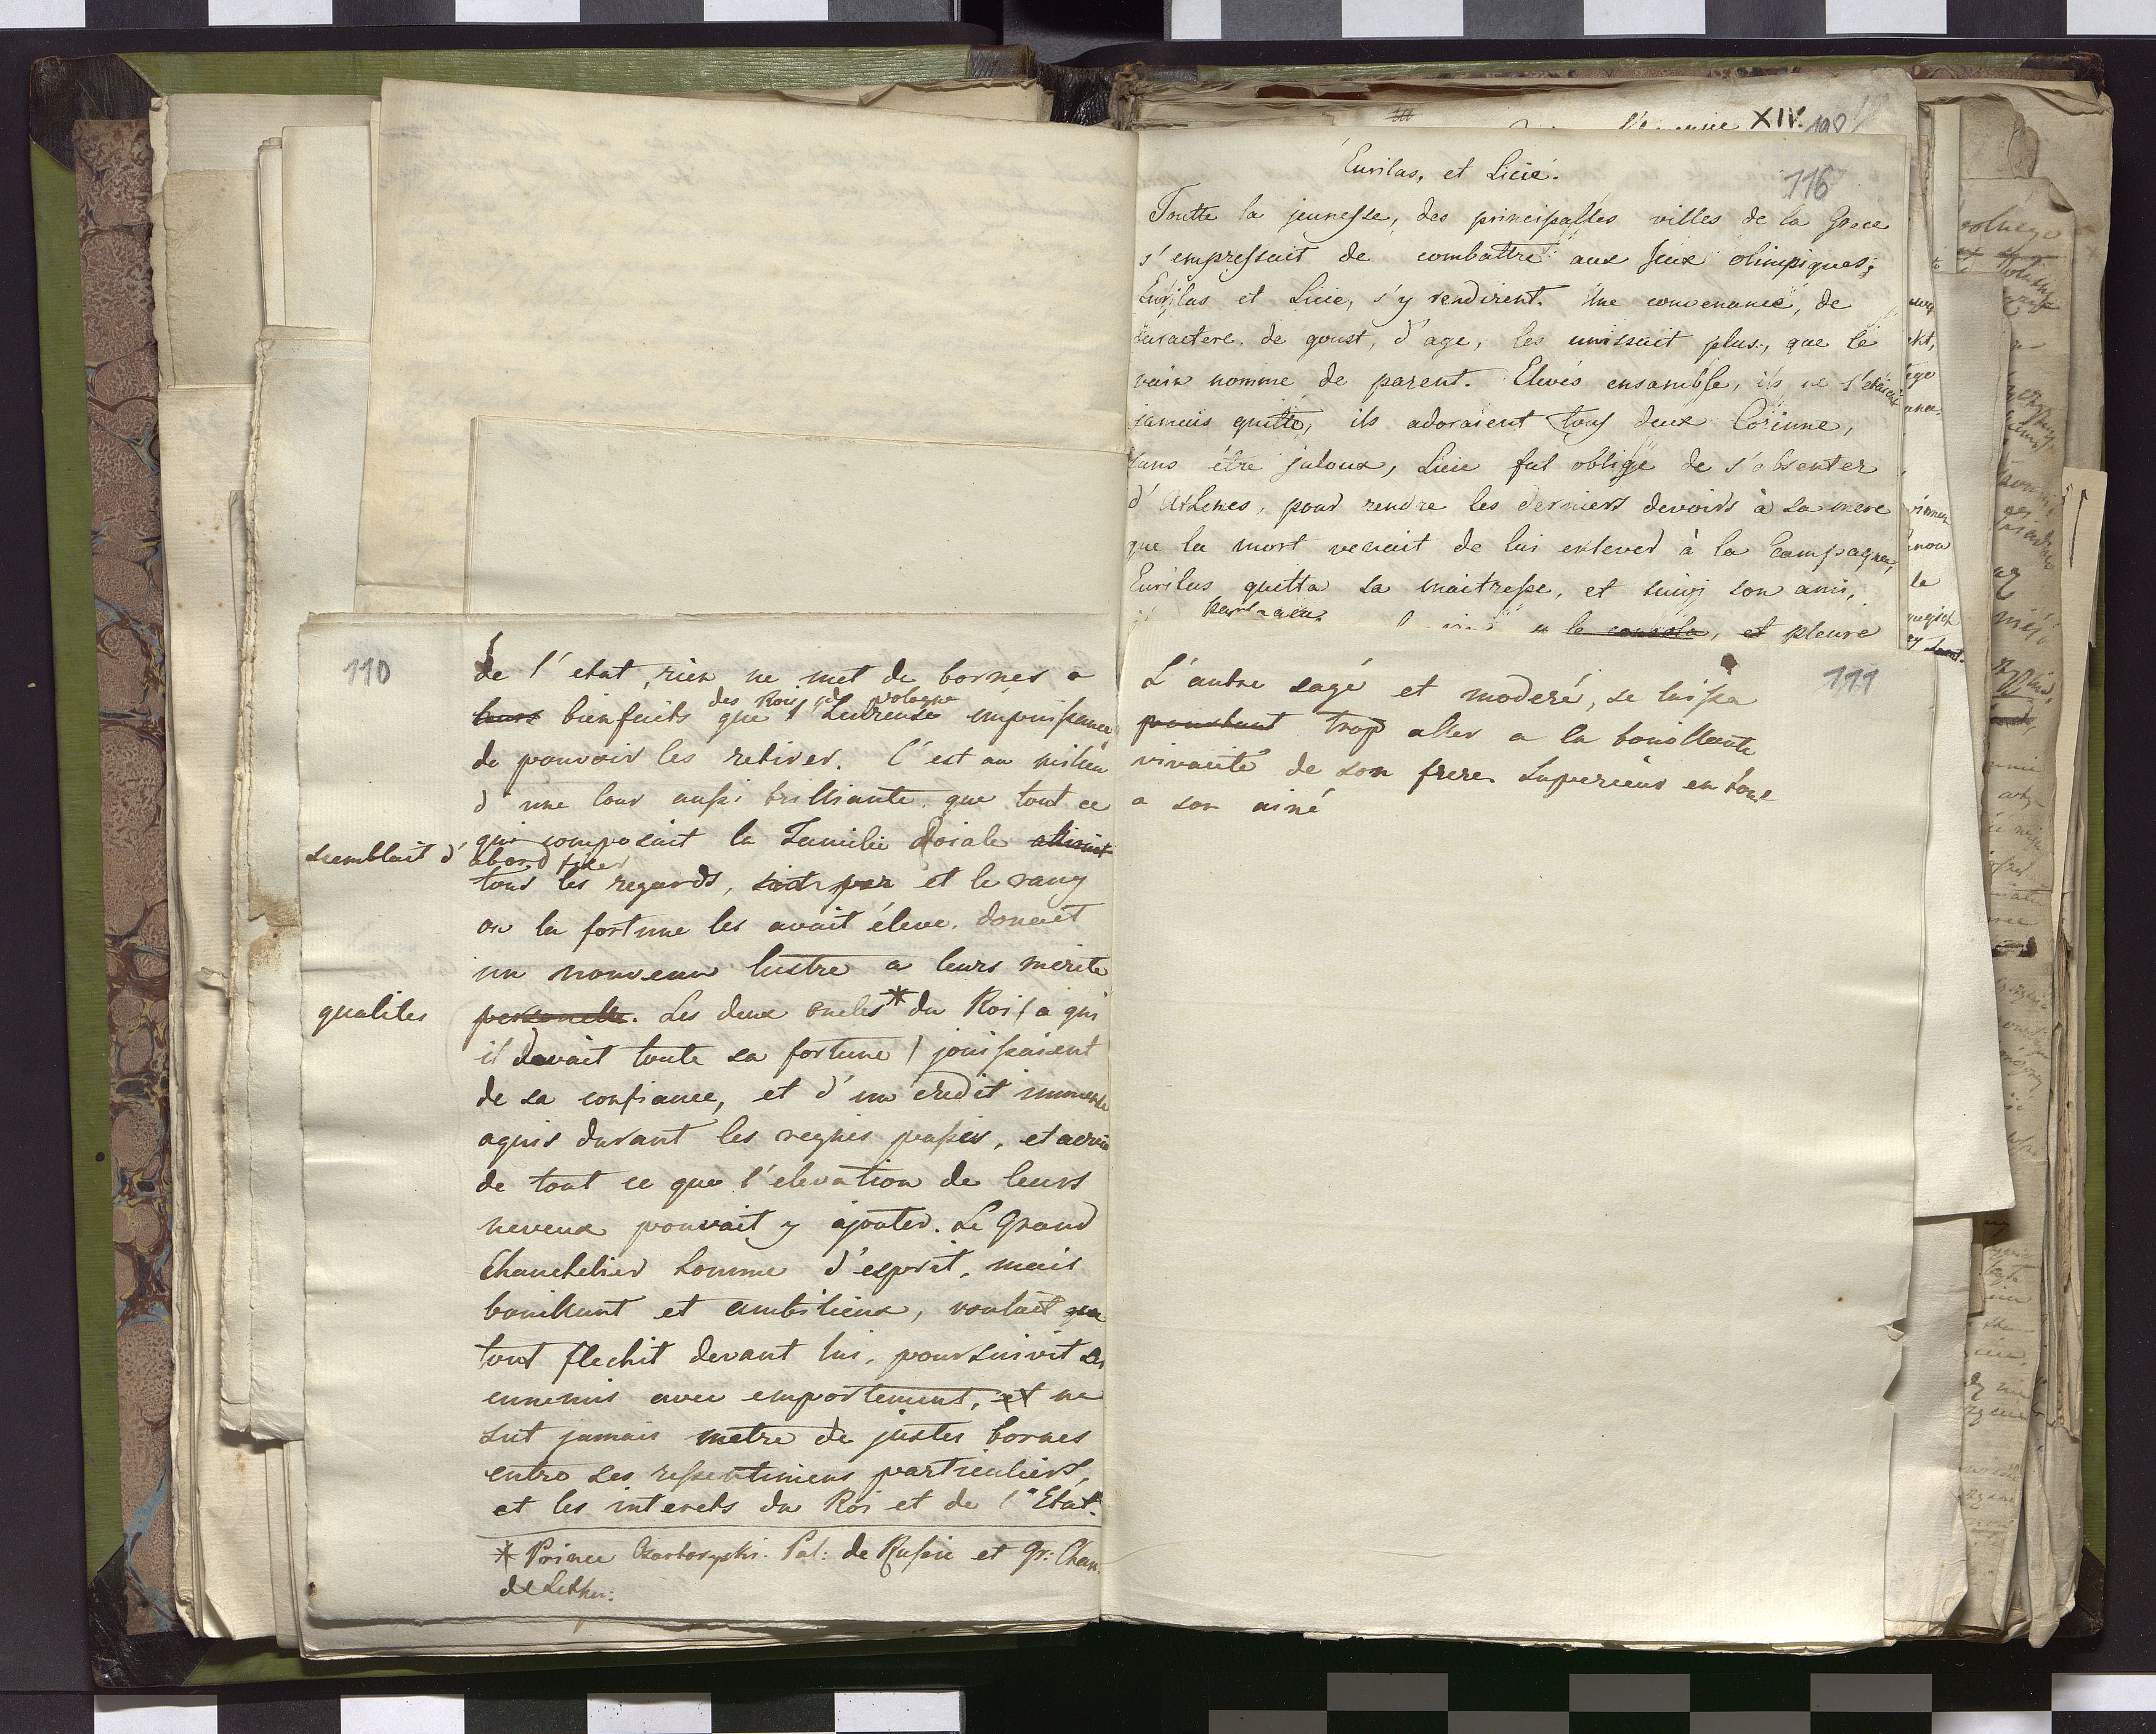 110
de l'etat, rien ne met de bornes a
des Rois de pologne
leurs bienfaits que l'heureuse impuissance
de pouvoir les retirer. C'est au milieu
d'une Cour aussi brilliante, que tout ce
qui composait la Familie Roiale attirait
semblait d'abord fixer
tous les regards, soit par et le rang
ou la fortune les avait éleve. donait
un nouveau lustre a leurs merite
qualites
personelle. Les deux oncles* du Roi (a qui
il devait toute sa fortune) jouissaient
de sa confiance, et d'un credit immense
aquis durant les regnes passes, et accru
de tout ce que l'elevation de leurs
neveux pouvait y ajouter. Le Grand
Chanchelier homme d'esprit, mais
bouillant et ambitieux, voulait que
tout flechit devant lui, poursuivit ses
ennemis avec emportement, et ne
sut jamais metre de justes bornes
entre ses ressentimens particuliers,
et les interets du Roi et de l'Etat.
* Prince Czartoryski. Pal: de Russie et Gr: Chan.
de Lithu:
XIV. 198
Eurilas, et Licie.
116
Toutte la jeunesse, des principalles villes de la Grece
s'empressait de combattre aux Jeux olimpiques;
Eurilas et Licie, s'y rendirent. Une convenance, de
caractere, de goust, d'age, les unissait plus, que le
vain nomme de parent. Elevés ensamble, ils ne s'etaient
jamais quitte, ils adoraient tous deux Corinne,
sans être jaloux, Licie fut obligé de s'absenter
d'Athenes, pour rendre les derniers devoirs à sa mere
que la mort venait de lui enlever à la Campagne,
Eurilas quitta sa maitresse, et suivi son ami,
le consola, et pleure
111
L'autre sage et moderé, se laissa
pourtant trop aller a la bouillante
vivacité de son frere superieur en tout
a son ainé